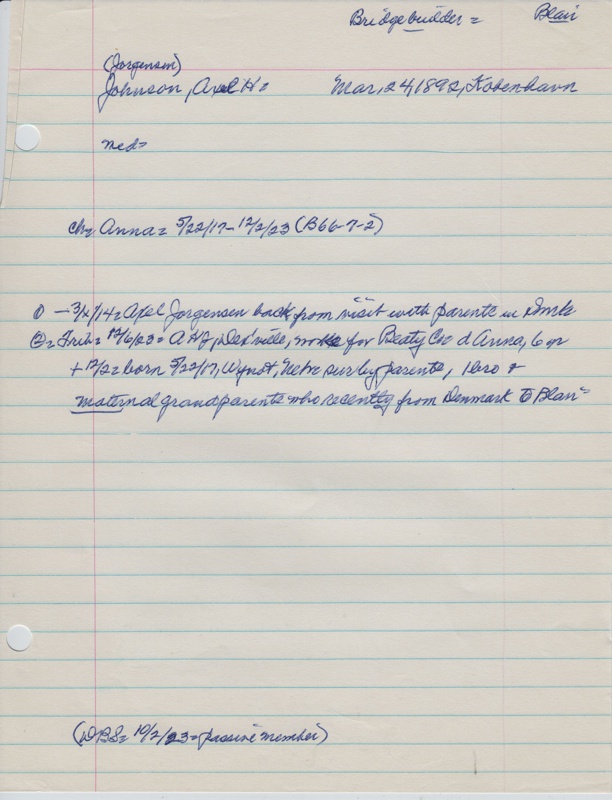 Bridgebuilder = Blair
(Jorgensen)
Johnson, Axel H = Mar, 24, 1892, Kobenhavn
med=
ch= Anna = 5/22/17 - 12/2/23 (B66-7-2)
① - 3/ /14 = Axel Jorgensen back from visit with parents in Dmk
②= Frib = 12/6/23 = A H J, , works for Beaty Co d Anna, 6 yr
+ 12/2 = born 5/22/17, Wynot, Nebr surby parents, 1 bro &
maternal grandparents who recently from Denmark to Blair =
(DBS = 10/2/23 = passive member)